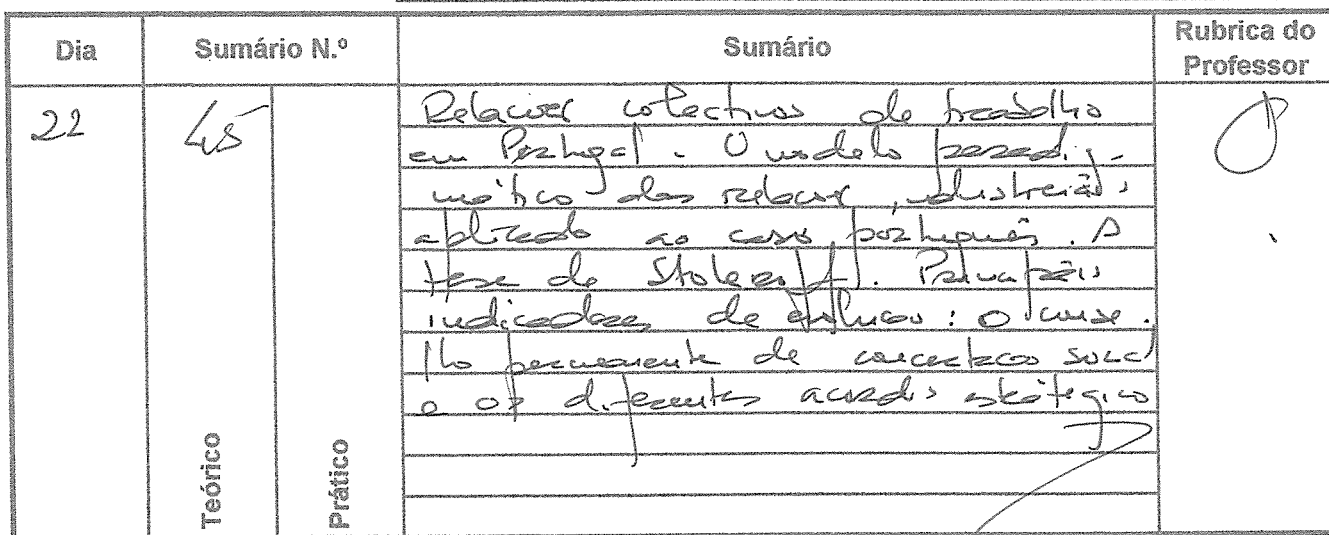 Dia Sumário N.º Sumário Rubrica do Professor
22 45 Relações colectivas de trabalho
em Portugal. O modelo paradig-
mático das relações industriais
aplicado ao caso português. A
tese de Stoleroff. Principais
indicadores de evolução: o conse-
lho permanente de concertação social
e os diferentes acordos estratégico
Teórico
Prático